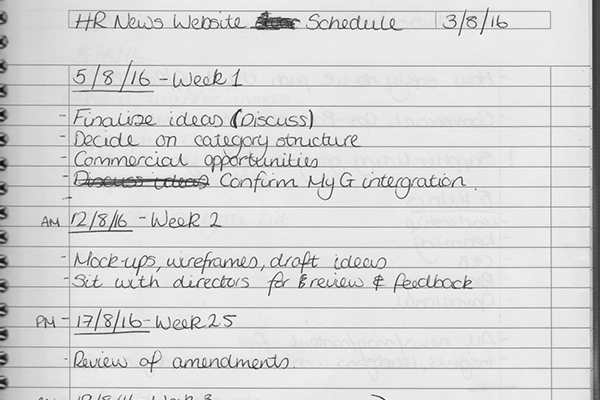 HR News Website Schedule 3/8/16
5/8/16 - Week 1
- Finalize ideas (Discuss)
- Decide on category structure
- Commercial opportunities
- Discuss ideas Confirm MyG intergration.
-
AM 12/8/16 - Week 2
- Mock-ups, wireframes, draft ideas
- Sit with directors for review & feedback
PM - 17/8/16 - Week 2.5
- Review of amendments.